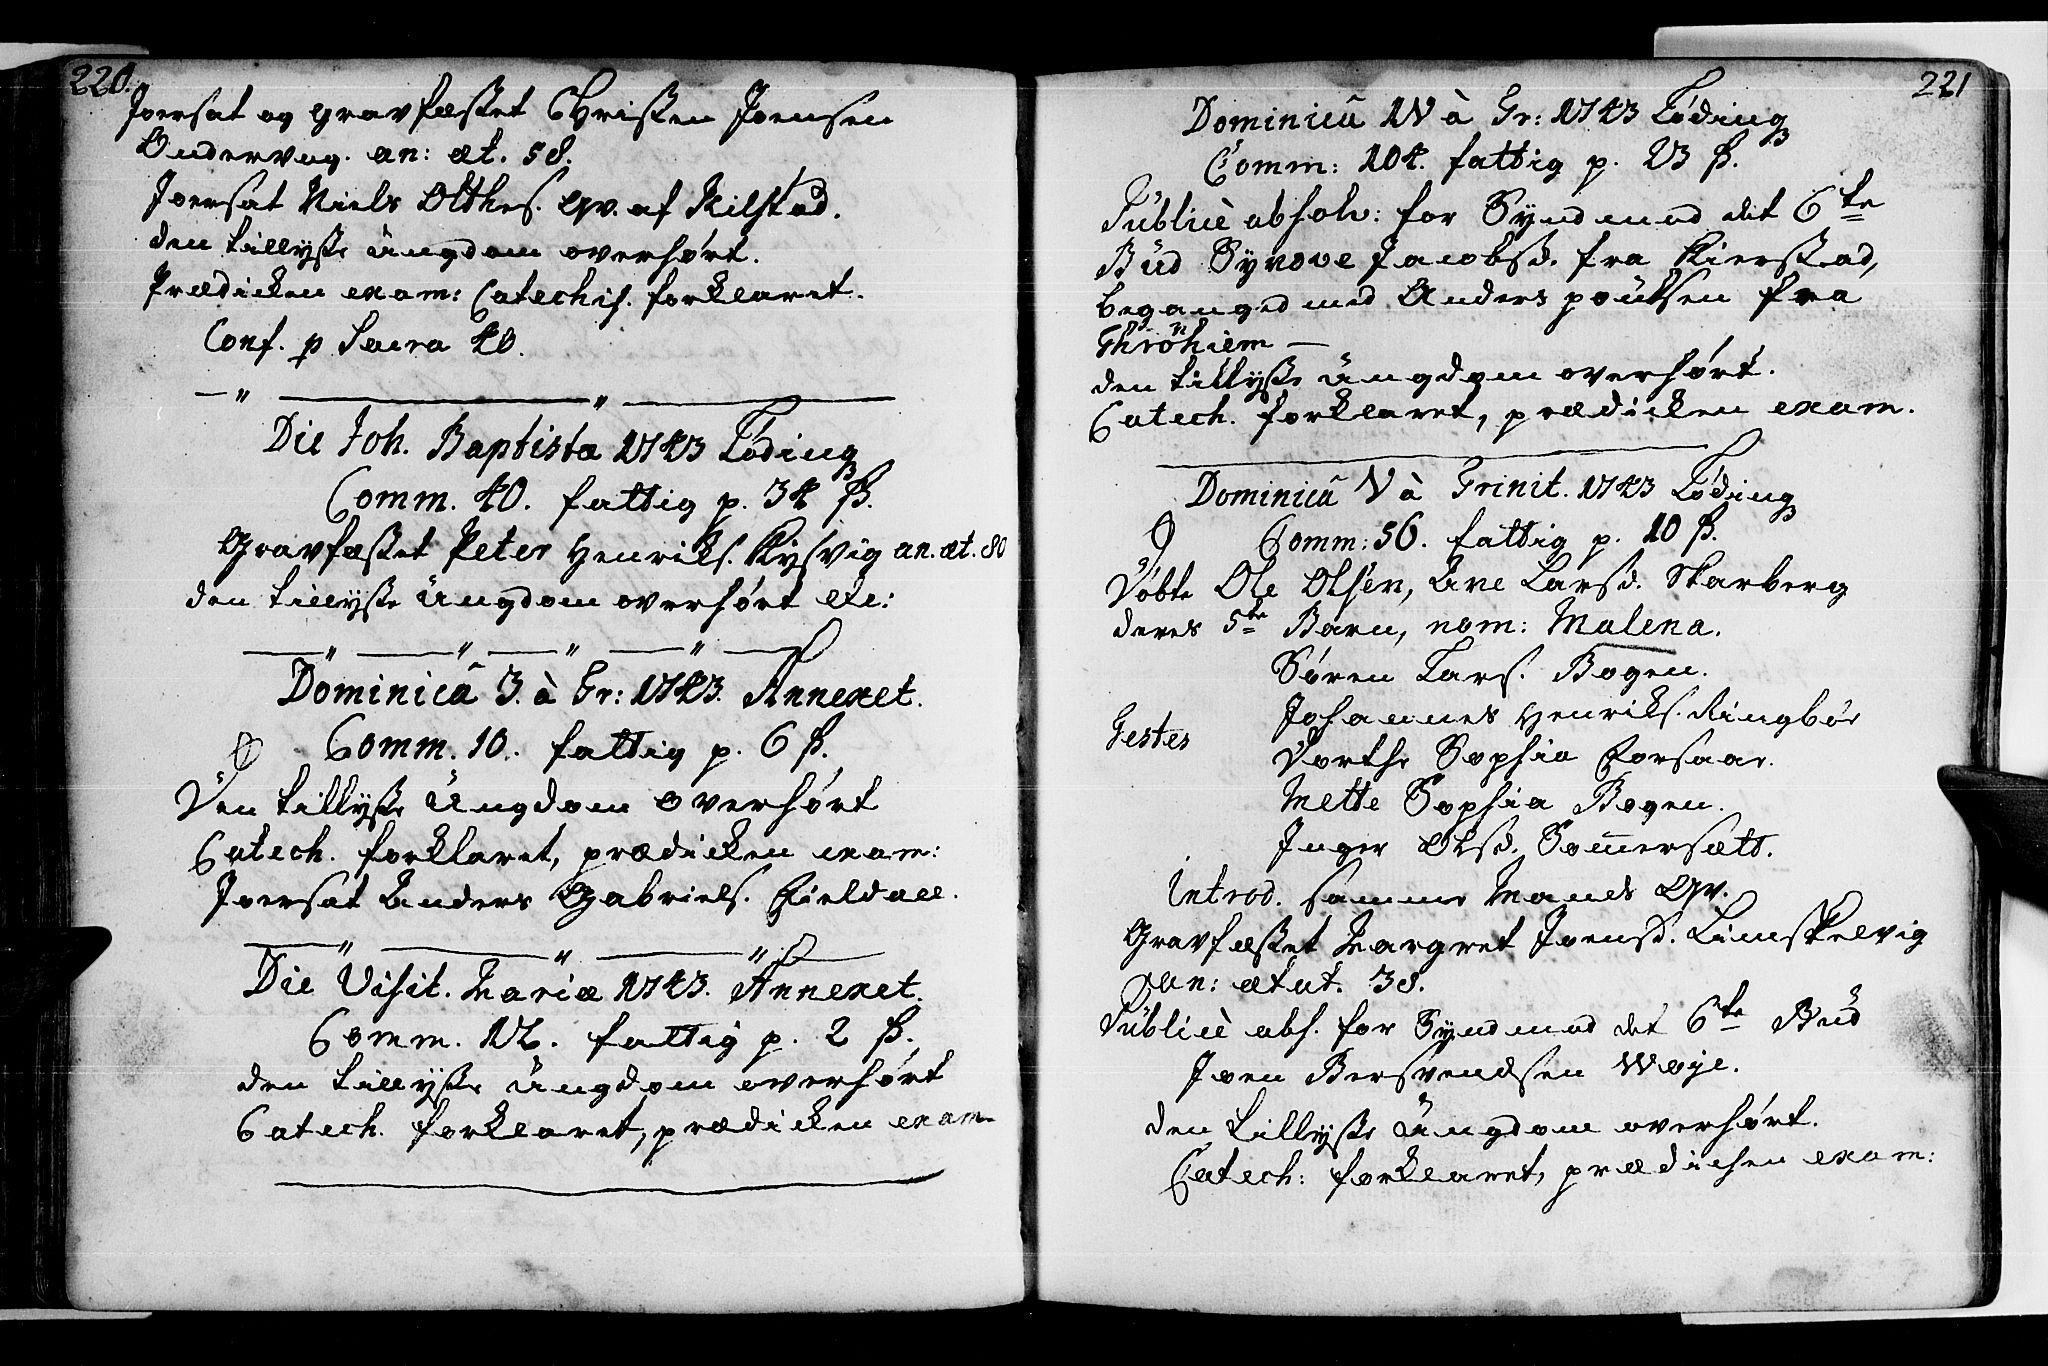 220.
Joersat og gravfæstet Christen Joensen
Ondervog. an: æt. 58.
Joersat Niels Olthes. Qv. af Kilstad.
den tillyste ungdom overhørt.
Prædicken exam: Catechis. forklaret.
Conf. p Sacra 40.
Die Joh. Baptista 1743 Løding
Comm. 40. fattig p. 34 ß.
Gravfæstet Peter Henriks. Nysvig an. æt. 80
den tillyste ungdom overhørt etc:
Dominica 3. à Tr: 1743. Annexet.
Comm. 10. fattig p. 6 ß.
Den tillyste ungdom overhørt
Catech. forklaret, prædicken exam:
Joersat Anders Gabriels. Fieldall.
Die Visit. Mariæ 1743. Annexet.
Comm. 12. fattig p. 2 ß.
den tillyste ungdom overhørt
Catech. forklaret, prædicken exam
221
Dominica IV à Tr: 1743 Løding
Comm: 104. fattig p. 23 ß.
Publicè absolv: for Synd mod det 6te
Bud Synove Jacobsd. fra Kierstad,
beganged med Anders poulsen fra
Throhiem —
den tillyste ungdom overhørt.
Catech. forklaret, prædicken exam.
Dominica V à Trinit. 1743 Løding
Comm: 56. fattig p. 10 ß.
Døbte Ole Olsen, Ane Larsd. Skarberg
deres 5te Barn, nom: Malena.
Søren Lars. Bogen.
Johannes Henriks. Ringbør
Testes
Dorthe Sophia Forsaae.
Mette Sophia Bogen.
Inger Olsd. Somersætt.
Introd. samme Mands Qv.
Gravfæstet Margret Joensd. Limskelvig
an: ætat. 38.
Publicè abs. for Synd mod det 6te Bud
Joen Bersvendsen Woje.
den tillyste ungdom overhørt.
Catech: forklaret, prædichen exam: